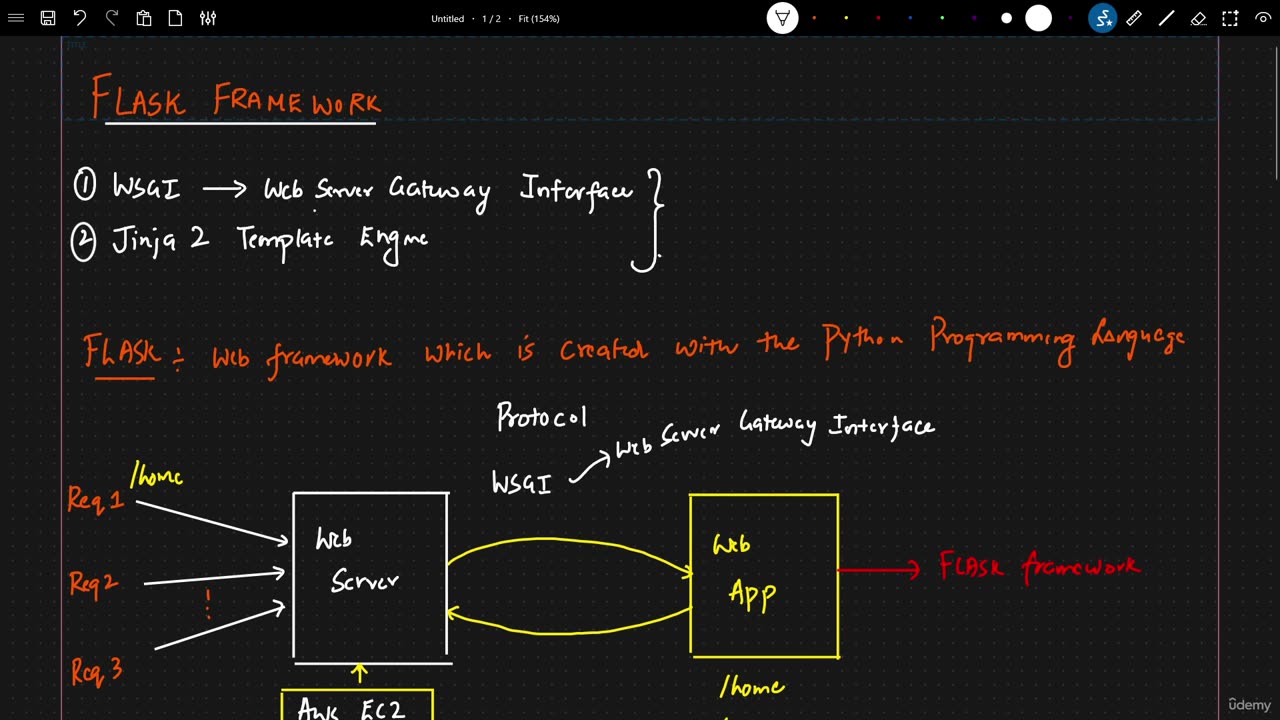 Untitled · 1 / 2 · Fit (154%)
FLASK FRAMEWORK
① WSGI → Web Server Gateway Interface
② Jinja 2 Template Engine
FLASK ÷ Web framework which is created with the Python Programming Language
Protocol
WSGI → Web Server Gateway Interface
/home
Req 1
Req 2
Req 3
Web
Server
Web
App
FLASK framework
/home
AWS EC2
ûdemy